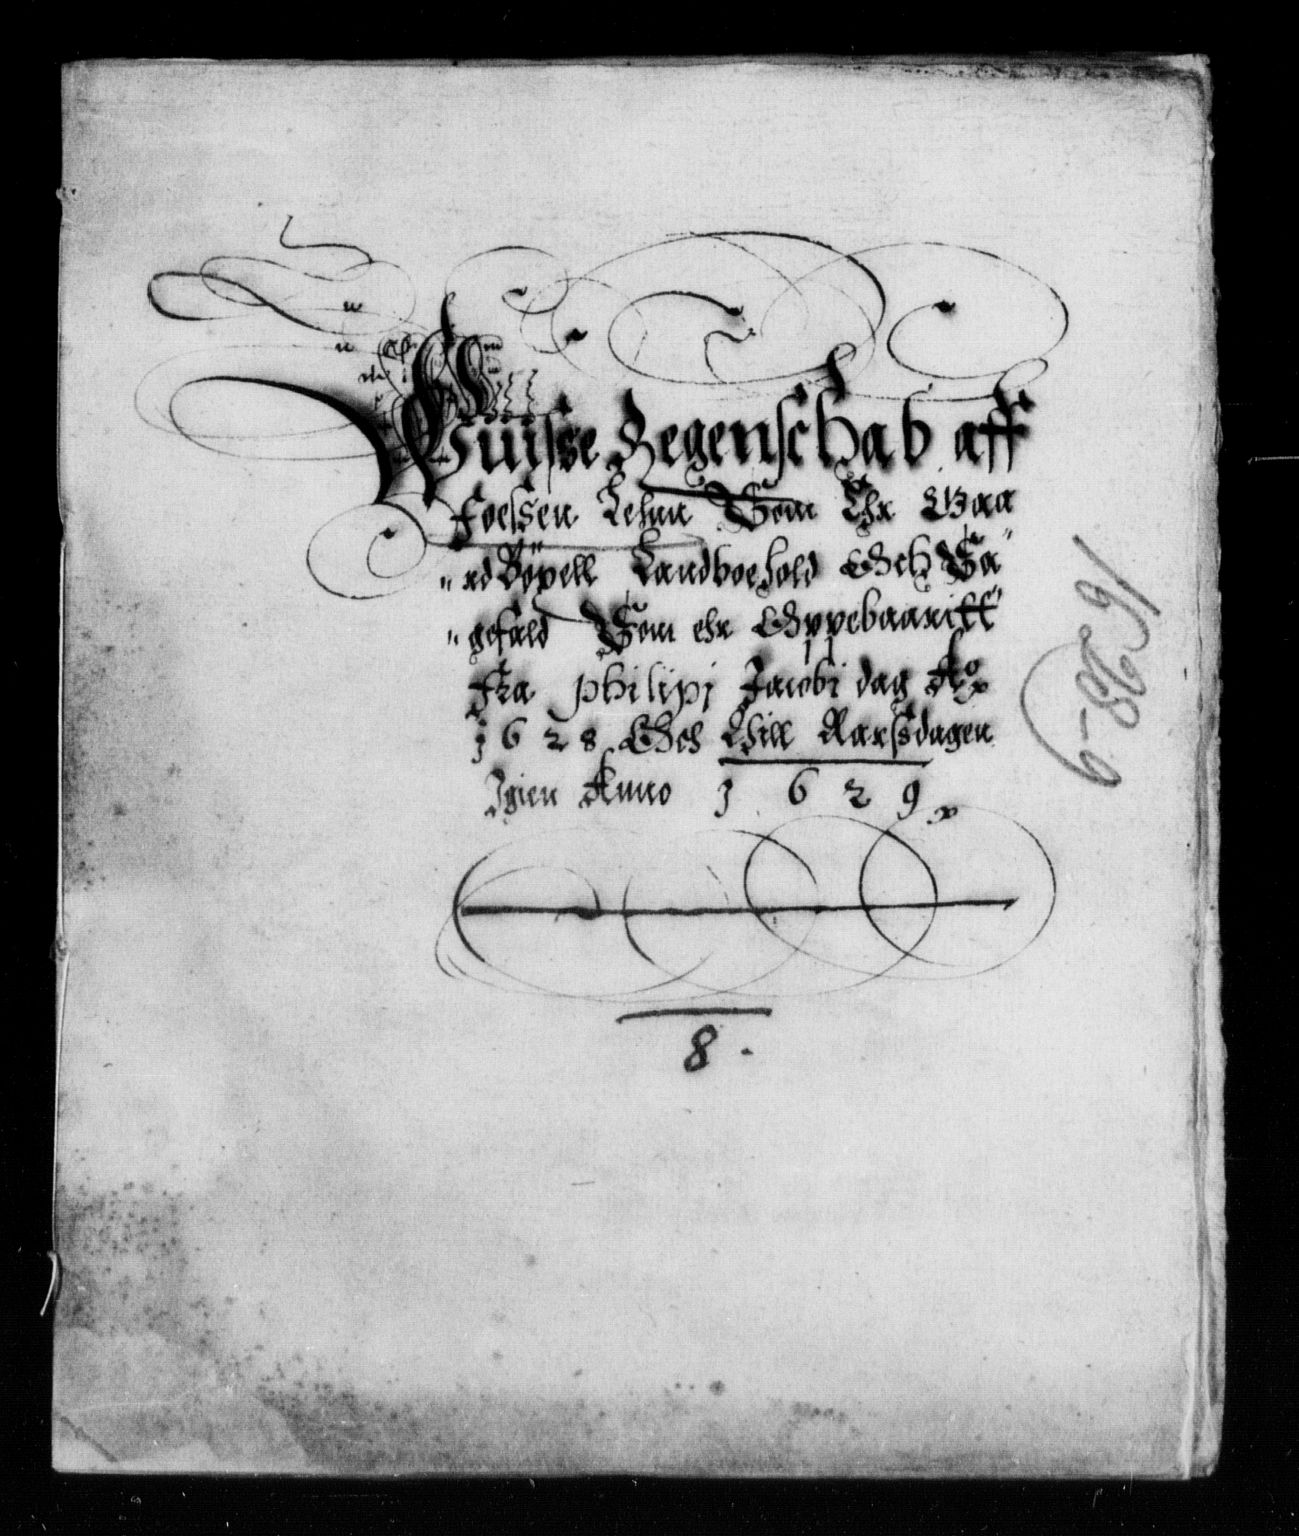 Wüisse Regenschab aff
Foessen Lehnn Som Ehr Gaa
"rd Böyell Landboehold Och Sa"
"gefald Som ehr Oppebaaritt"
Fra philipj Jacobi dag Ao
1628 Och Till Aarssdagen
Igien Anno 1629
8.
1628-9